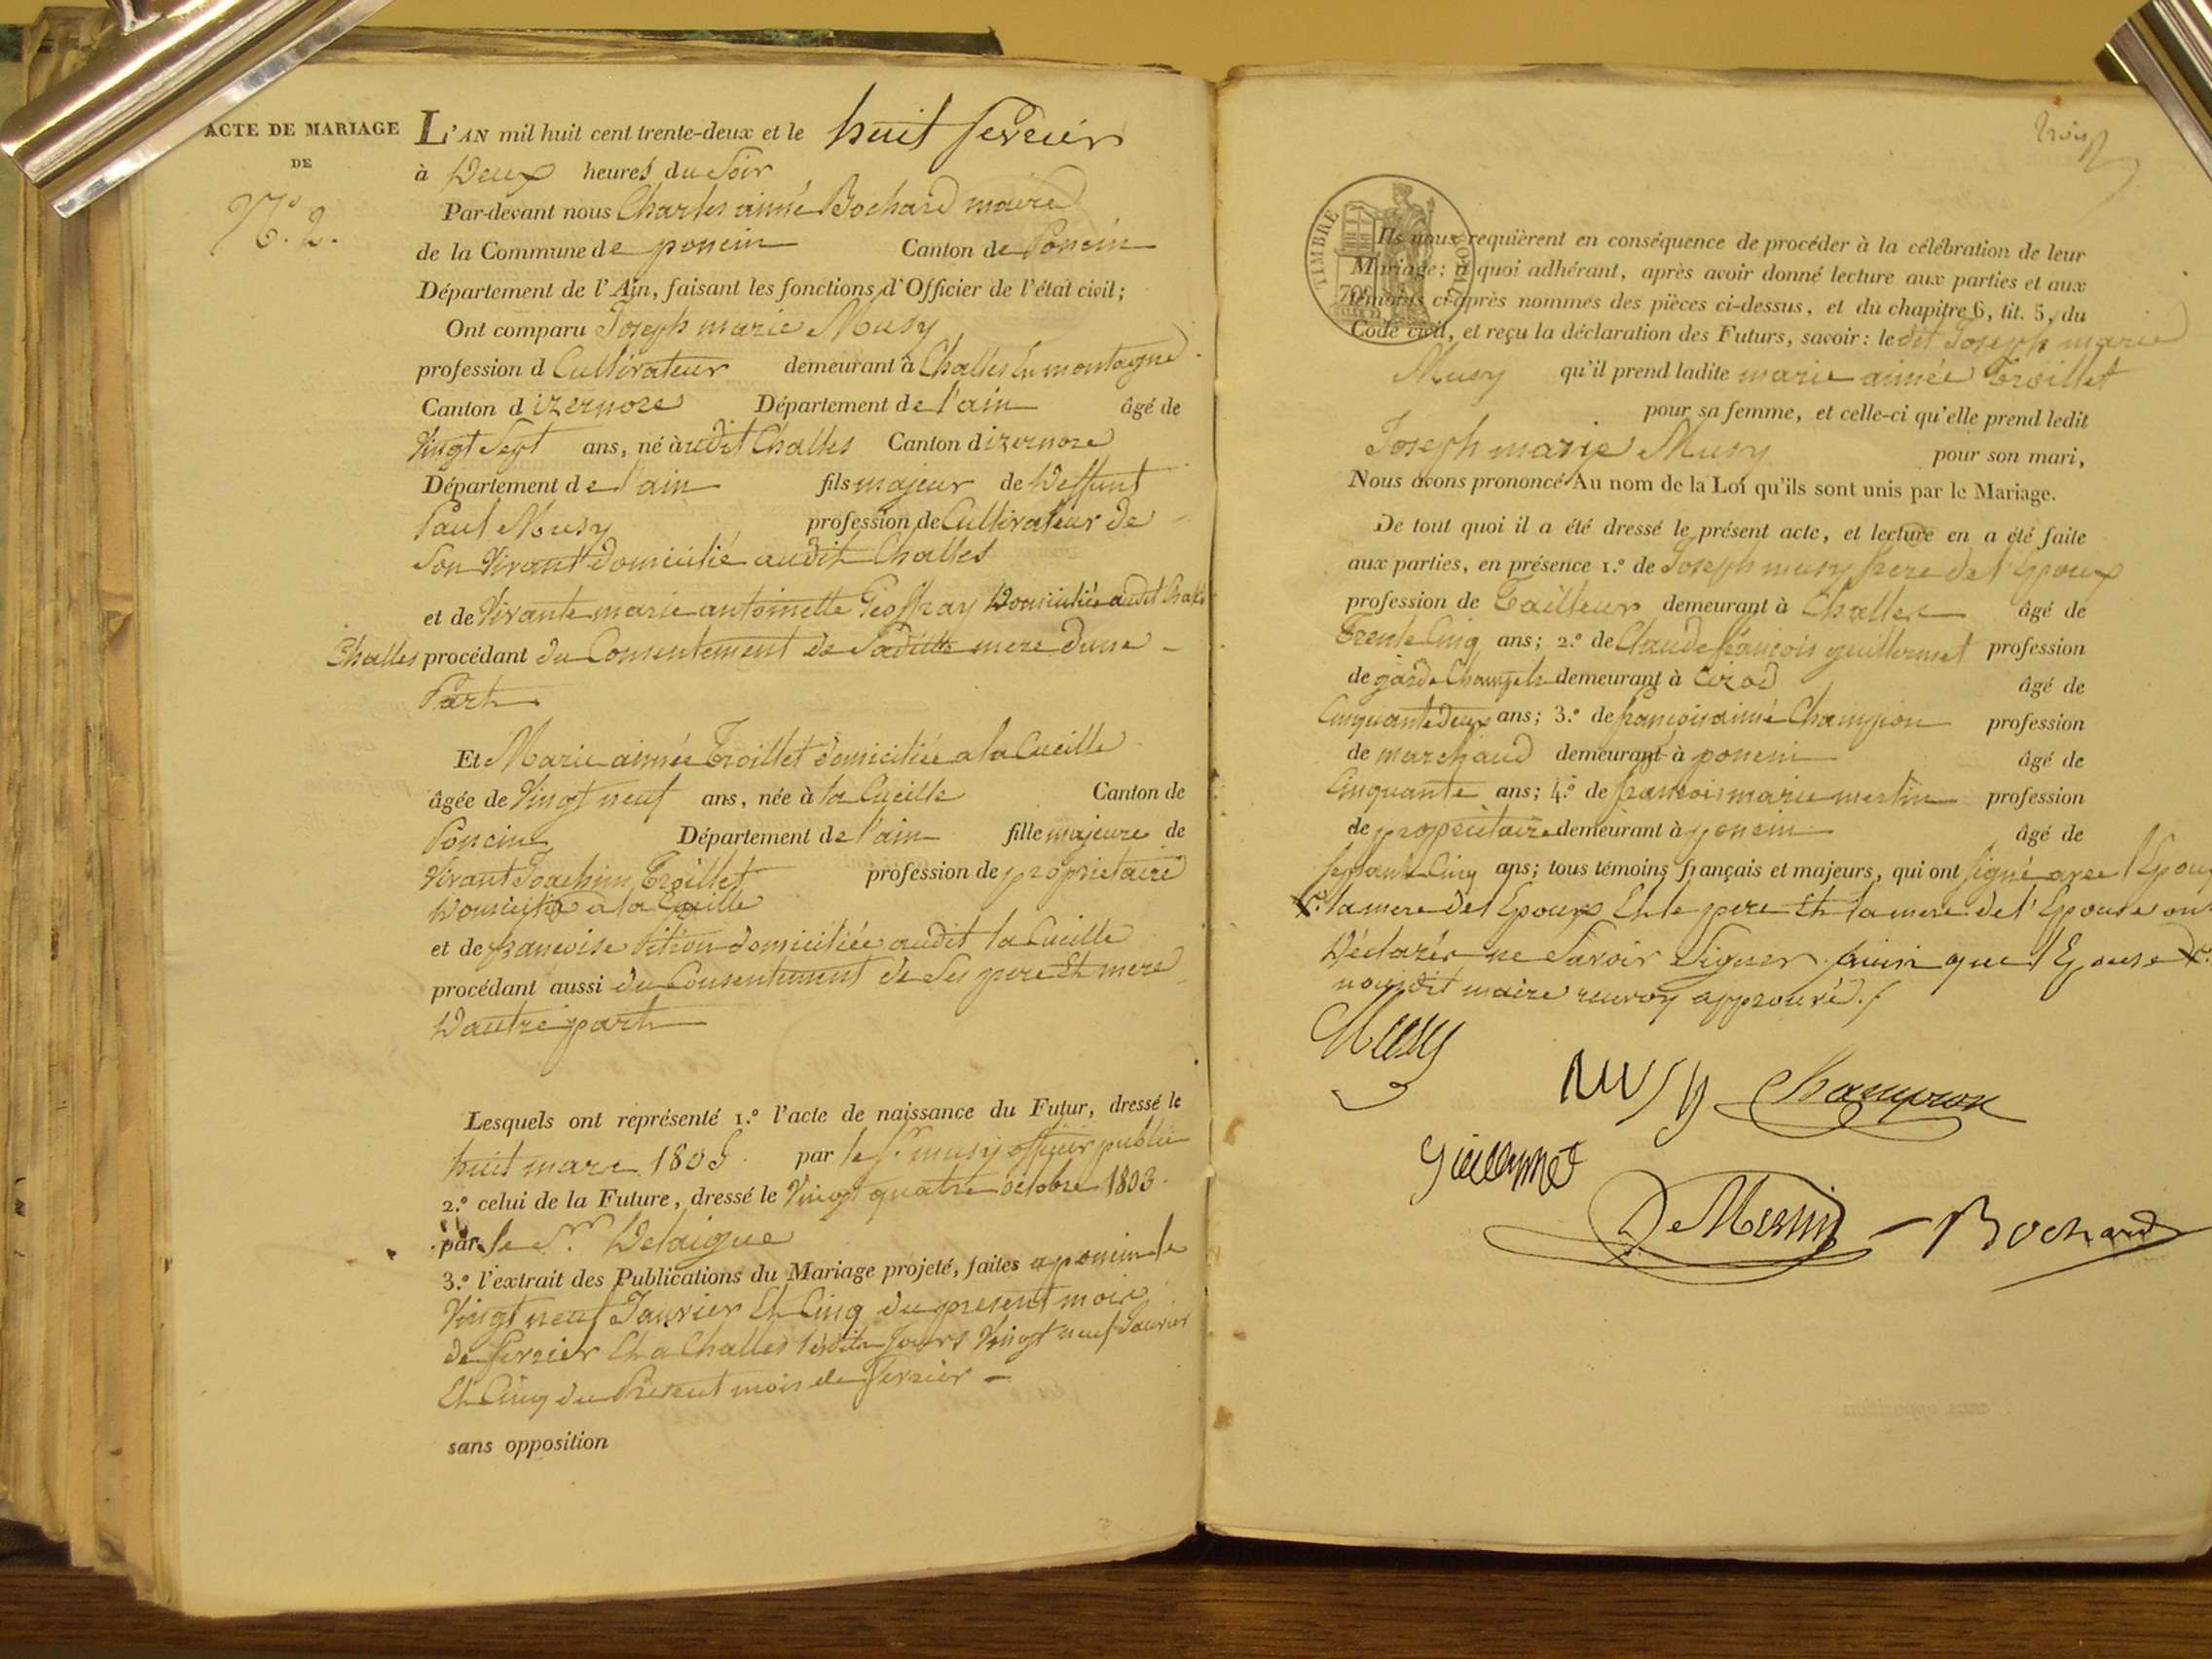 ACTE DE MARIAGE
DE
N.o 2.
L'AN mil huit cent trente-deux et le huit fevrier
à Deux heures du Soir
Par-devant nous Charles aimé Bochard maire
de la Commune de poncin Canton de Poncin
Département de l'Ain, faisant les fonctions d'Officier de l'état civil;
Ont comparu Joseph marie Musy
profession d Cultivateur demeurant à Challes la montagne
Canton d izernore Département de l'ain âgé de
Vingt Sept ans, né à audit Challes Canton d izernore
Département de l'ain fils majeur de Deffunt
Paul Musy profession de Cultivateur de
Son Vivant domicilié audit Challes
et de Vivante marie antoinette Geoffray Domiciliée audit Challes
Challes procédant du Consentement de Saditte mere dune
Part
Et Marie aimée Troillet domiciliée a la Cueille
âgée de Vingt neuf ans, née à la Cueille Canton de
Poncin Département de l'ain fille majeure de
Vivant Joachim Troillet profession de proprietaire
Domicilié a la Cueille
et de francoise domiciliée audit la Cueille
procédant aussi du Consentement de Ses pere Et mere
Dautre part
Lesquels ont représenté 1.º l'acte de naissance du Futur, dressé le
huit mars 1805 par le Sr. musy officier public
2.º celui de la Future, dressé le Vingt quatre octobre 1803
par le Sr. Delaigue
3.º l'extrait des Publications du Mariage projeté, faites a poncin le
Vingt neuf Janvier Et Cinq du present mois
de fevrier Et a Challes lesdits Jours Vingt neuf Janvier
Et Cinq du Present mois de Fevrier
sans opposition
trois
TIMBRE ROYAL
70
Ils nous requièrent en conséquence de procéder à la célébration de leur
Mariage; à quoi adhérant, après avoir donné lecture aux parties et aux
témoins ci-après nommés des pièces ci-dessus, et du chapitre 6, tit. 5, du
Code civil, et reçu la déclaration des Futurs, savoir: le dit Joseph marie
Musy qu'il prend ladite marie aimée Troillet
pour sa femme, et celle-ci qu'elle prend ledit
Joseph marie Musy pour son mari,
Nous avons prononcé Au nom de la Loi qu'ils sont unis par le Mariage.
De tout quoi il a été dressé le présent acte, et lecture en a été faite
aux parties, en présence 1.º de Joseph musy frere de l'Epoux
profession de Tailleur demeurant à Challes âgé de
Trente Cinq ans; 2.º de Claude françois guillermet profession
de garde Champetre demeurant à Cizod âgé de
Cinquante deux ans; 3.º de francois aimé Champion profession
de marchand demeurant à poncin âgé de
Cinquante ans; 4.º de francois marie mertin profession
de proprietaire demeurant à poncin âgé de
Septante Cinq ans; tous témoins français et majeurs, qui ont Signé avec l'Epoux
la mere de l'Epoux Et le pere Et la mere de l'Epouse ont
Déclarés ne Savoir Signer ainsi que l'Epouse
nous dit maire renvoy approuvé./
Musy
MUSY Champion
Guillermet
De Mertin Bochard